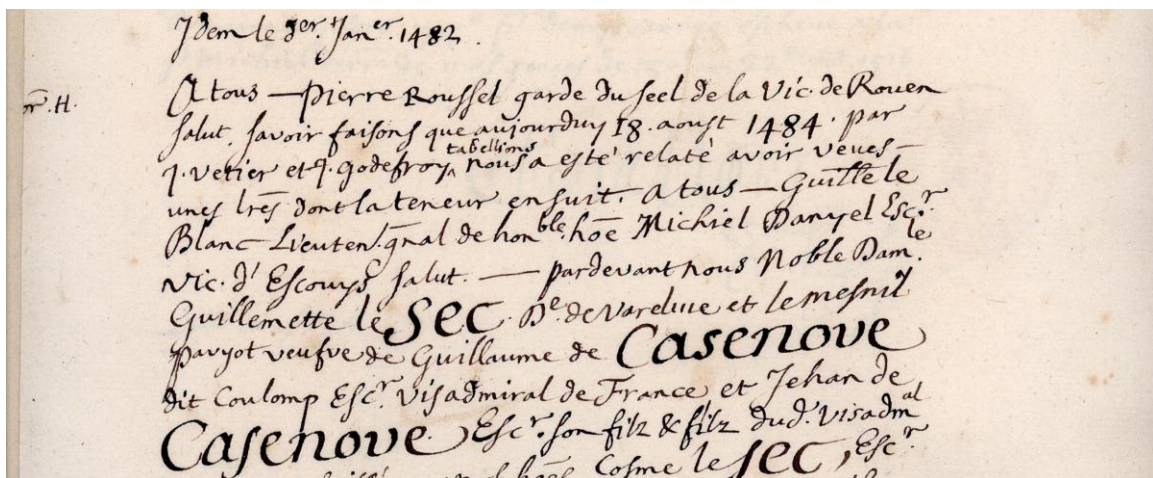 Idem le der. Janer. 1482.
or. H.
A tous — Pierre Roussel garde du seel de la Vic. de Rouen
salut, savoir faisons que aujourduy 18. aoust 1484. par
J. Vetier et J. Godefroy tabellions nous a esté relaté avoir veues —
unes lres dont la teneur ensuit. A tous — Guille le
Blanc Lieuten. gnal de honble. hoe Michiel Danyel Escr.
Vic. d'Escouys salut. — pardevant nous Noble Damle.
Guillemette le Sec. De. de Vareluie et le mesnil
pavyot veufve de Guillaume de Casenove
dit Coulomp Escr. Visadmiral de France et Jehan de
Casenove Escr. son filz & filz dud. Visadmal
Cosme le Sec, Escr.